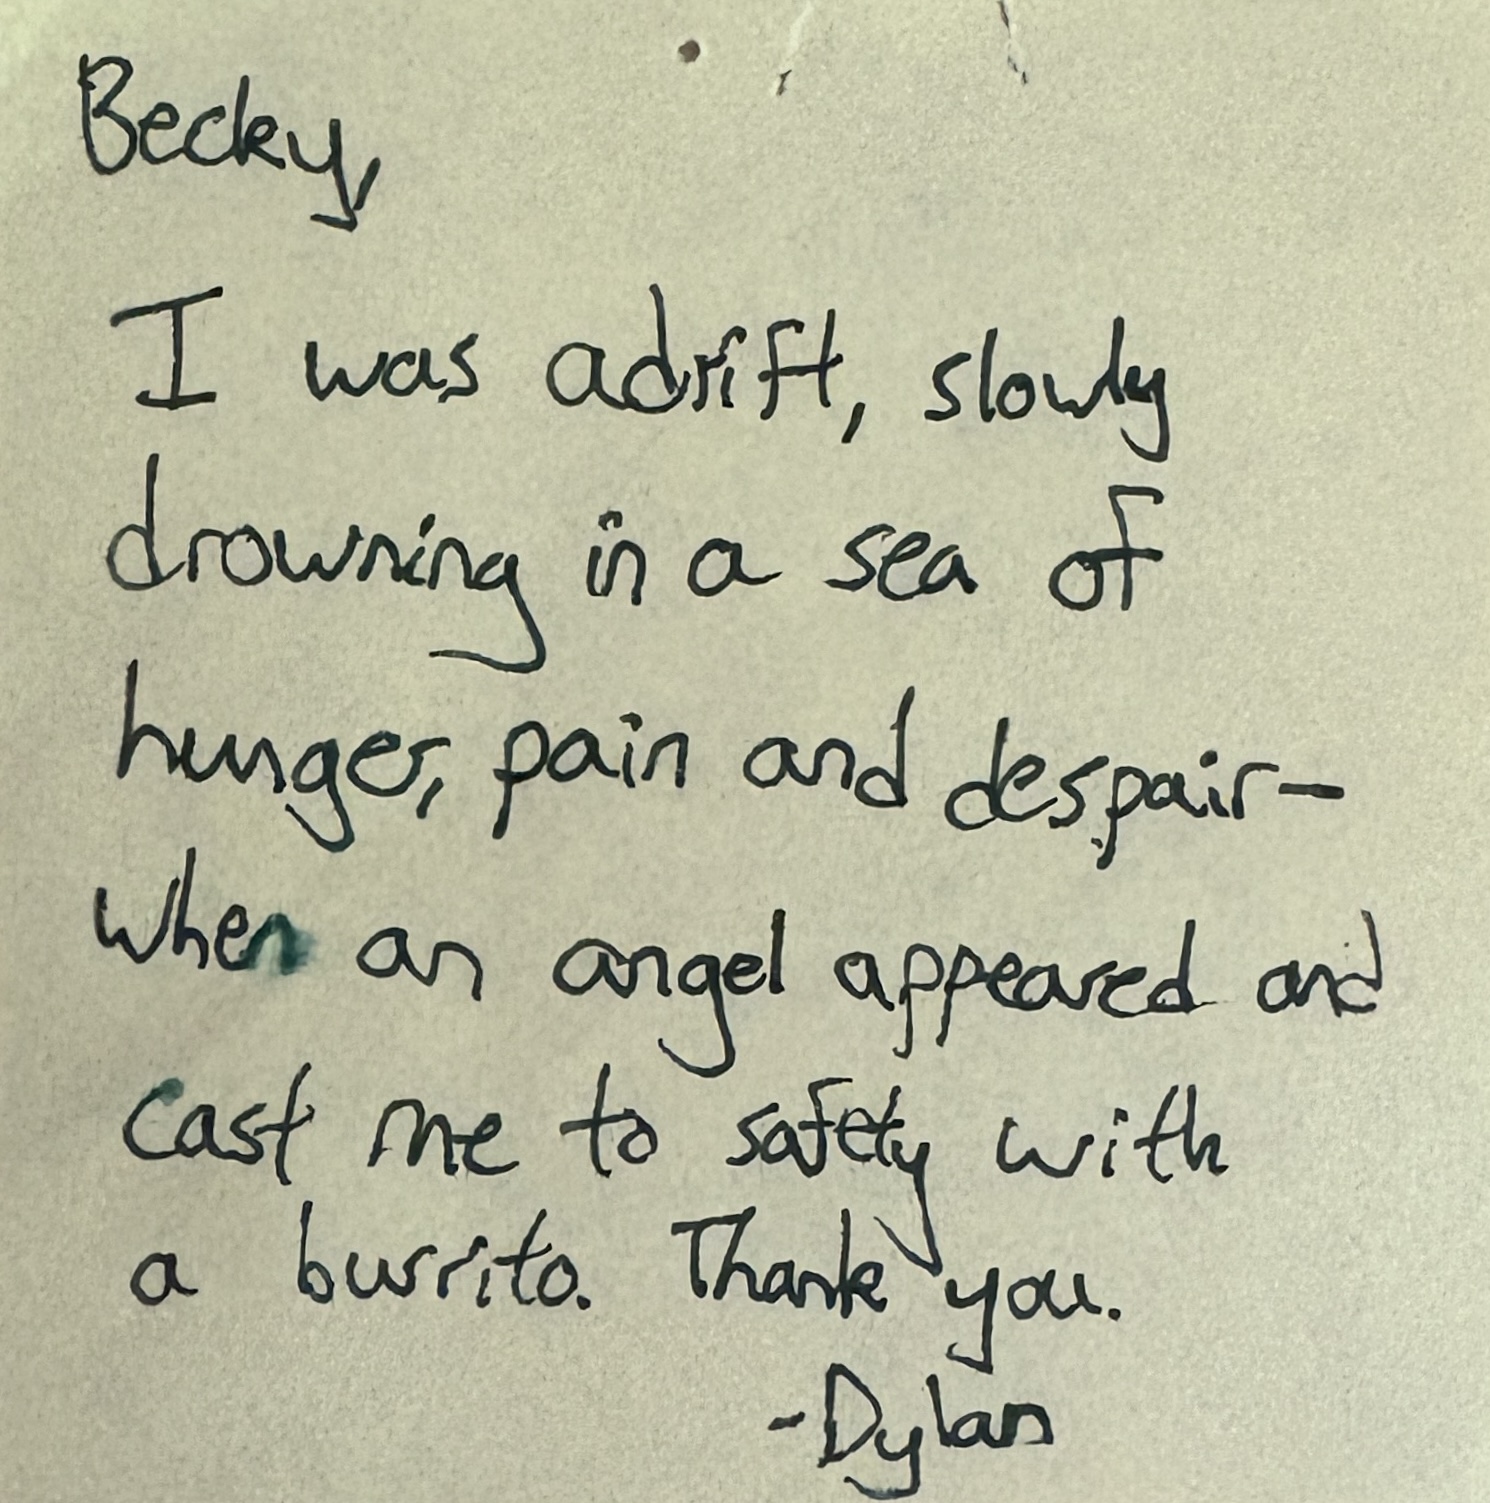 Becky,
I was adrift, slowly
drowning in a sea of
hunger, pain and despair-
when an angel appeared and
cast me to safety with
a burrito. Thank you.
-Dylan